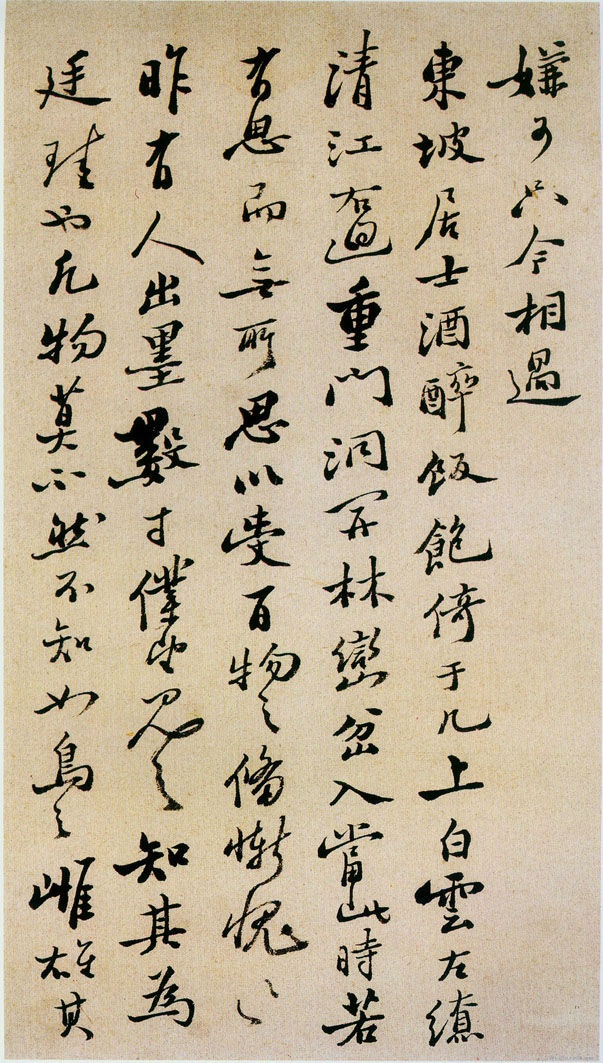 嫌可只今相過
東坡居士酒醉飯飽倚于几上白雲左繚
清江右迴重門洞開林巒坌入當此時若
有思而無所思以受百物之備慚愧〻〻
昨有人出墨數寸僕望見之知其為
廷珪也凡物莫不然不知如鳥之雌雄其